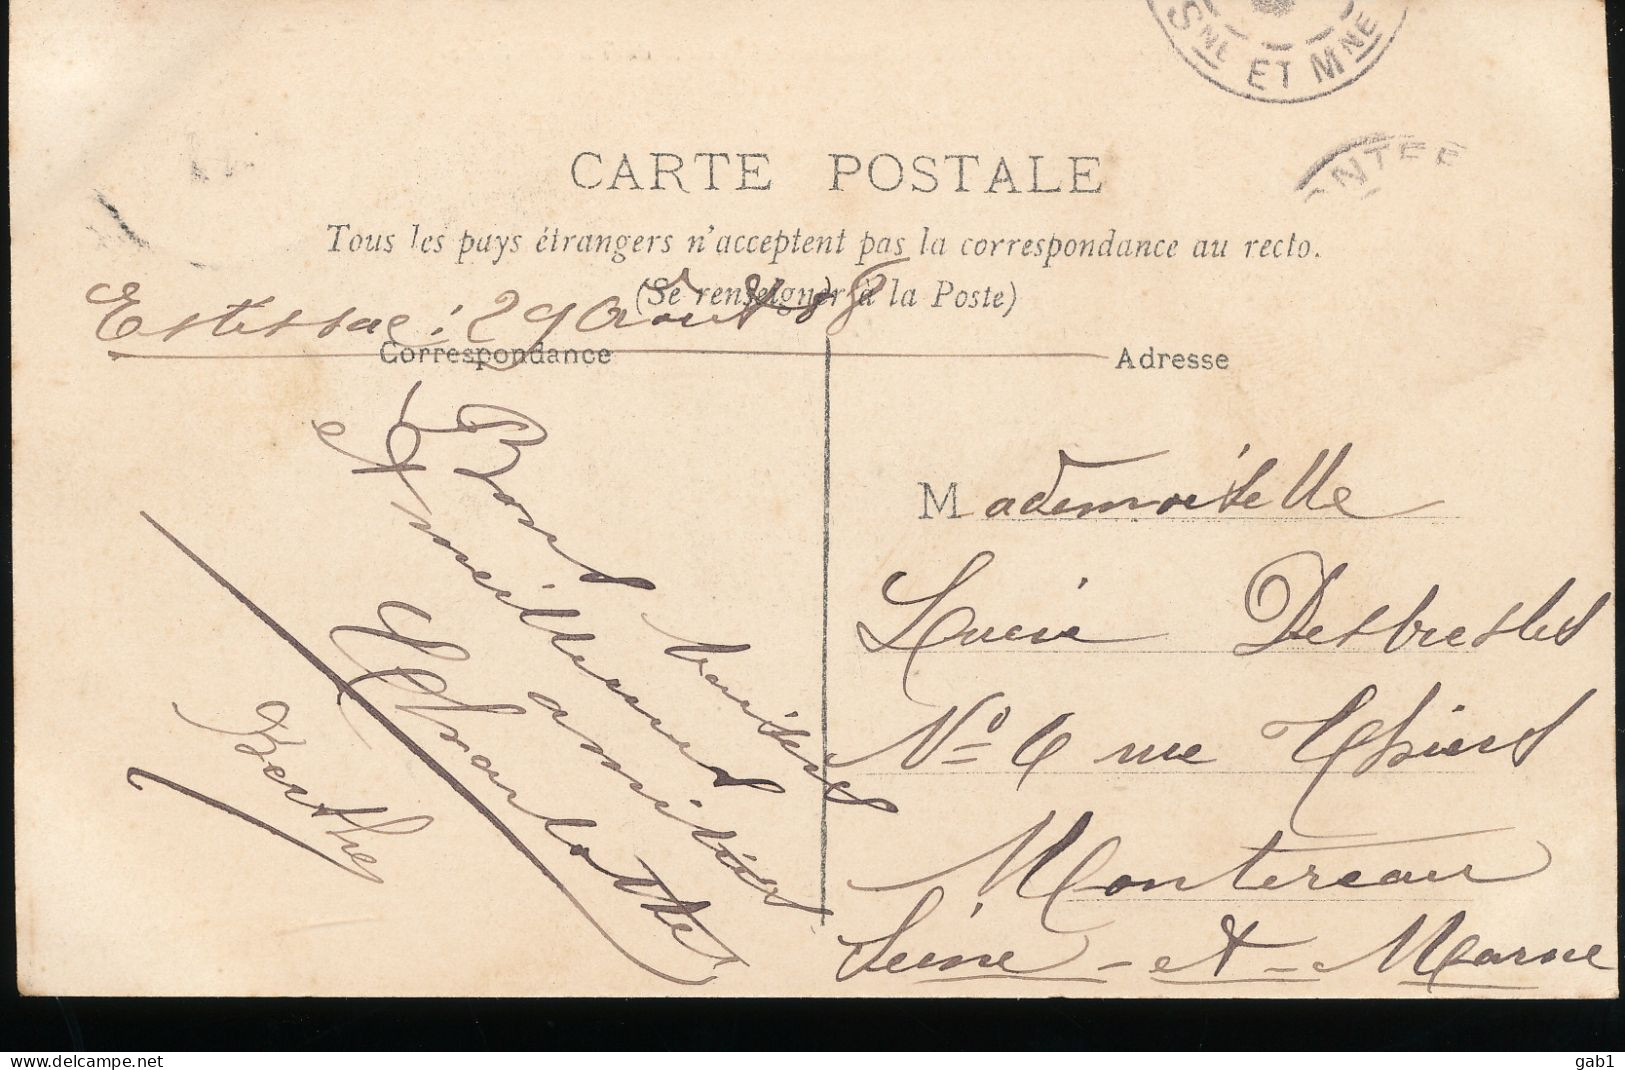 SNE ET MNE
CARTE POSTALE
Tous les pays étrangers n'acceptent pas la correspondance au recto.
(Se renseigner à la Poste)
Estissac: 29 Août
Correspondance
Bons baisers
et meilleures
amitiés
Charlotte
Berthe
Adresse
Mademoiselle
Lucie
No 6 rue Thiers
Montereau
Seine-et-Marne
www.delcampe.net
gab1